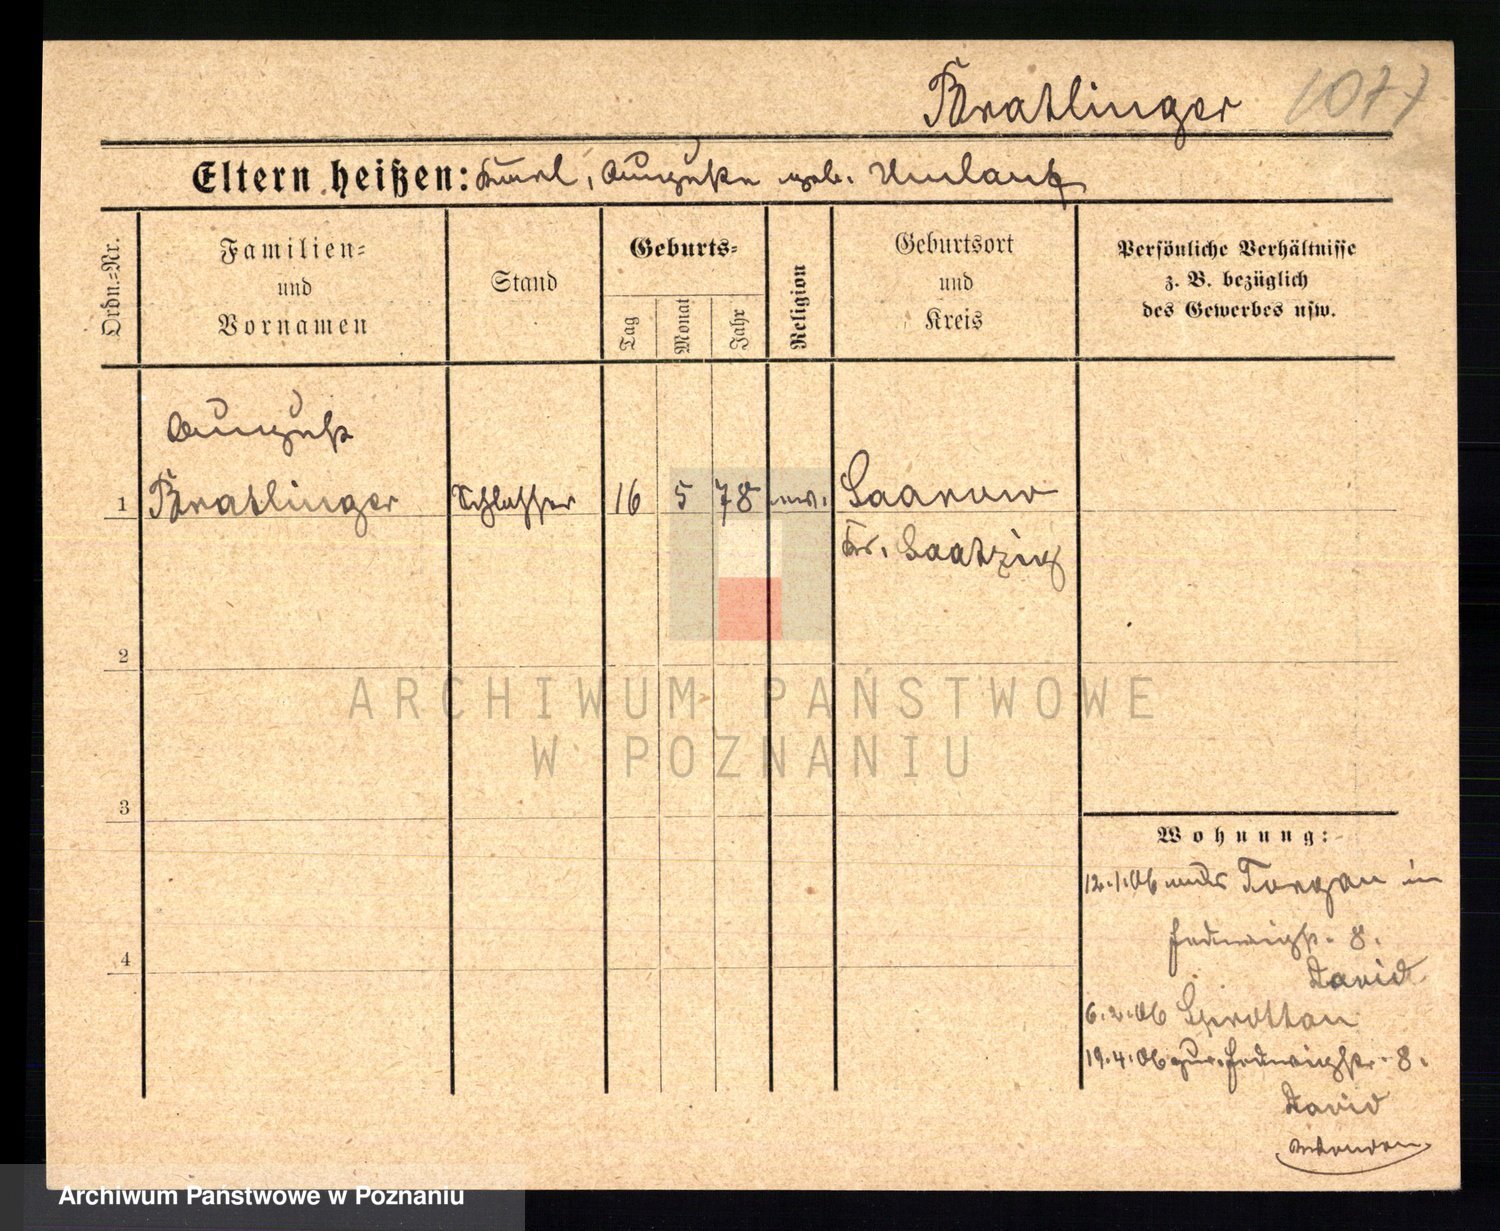 Bratlinger 1077
Eltern heißen: Karl, Auguste geb. Umlauf
Ordn.-Nr.
Familien-
und
Vornamen
Stand
Geburts-
Tag
Monat
Jahr
Religion
Geburtsort
und
Kreis
Persönliche Verhältnisse
z. B. bezüglich
des Gewerbes usw.
August
1 Bratlinger Schlosser 16 5 78 ev. Saarow
Kr. Saatzig
2
ARCHIWUM PAŃSTWOWE
W POZNANIU
3
Wohnung:
12.1.06 aus Torgau in
Hedwigstr. 8.
4
David
6.2.06 Sprottau
19.4.06 zur. Hedwigstr. 8.
David
Archiwum Państwowe w Poznaniu